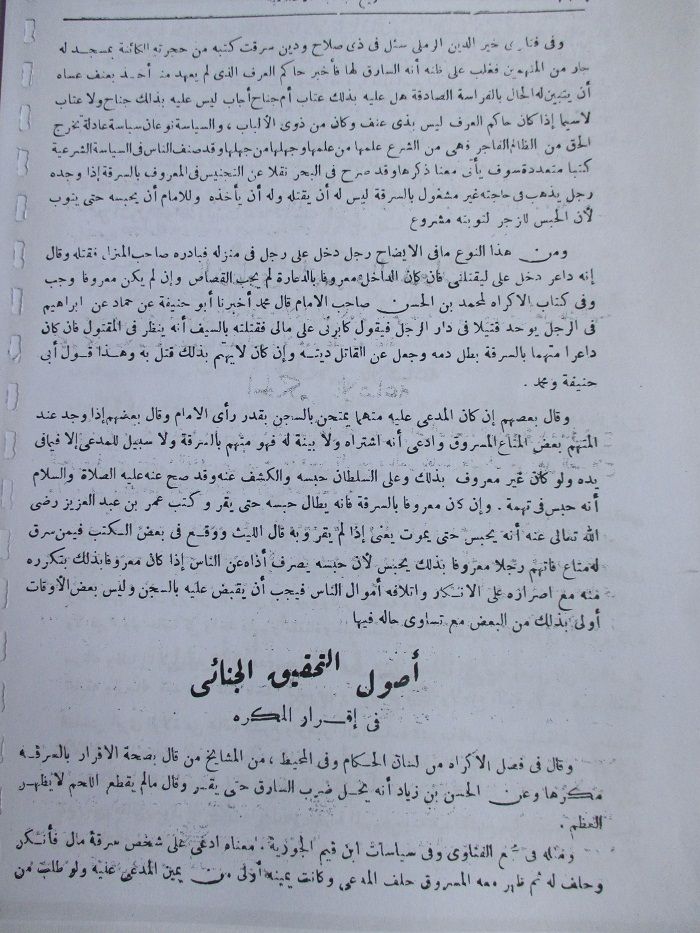 وفى فتاوى خير الدين الرملى سئل فى ذى صلاح ودين سرقت كتبه من حجرته الكائنة بمسجد له
جار من المتهمين فغلب على ظنه أنه السارق لها فأخبر حاكم العرف الذى لم يعهد منه أخذ بعنف عساه
أن يتبين له الحال بالفراسة الصادقة هل عليه بذلك عتاب أم جناح أجاب ليس عليه بذلك جناح ولا عتاب
لاسيما إذا كان حاكم العرف ليس بذى عنف وكان من ذوى الألباب ، والسياسة نوعان سياسة عادلة تخرج
الحق من الظالم الفاجر فهى من الشرع علمها من علمها وجهلها من جهلها وقد صنف الناس فى السياسة الشرعية
كتبا متعددة سوف يأتى معنا ذكرها وقد صرح فى البحر نقلا عن التجنيس فى المعروف بالسرقة إذا وجده
رجل يذهب فى حاجته غير مشغول بالسرقة ليس له أن يقتله وله أن يأخذه وللامام أن يحبسه حتى يتوب
لأن الحبس للزجر لتوبته مشروع
ومن هذا النوع مافى الايضاح رجل دخل على رجل فى منزله فبادره صاحب المنزل فقتله وقال
إنه داعر دخل على ليقتلنى فان كان الداخل معروفا بالدعارة لم يجب القصاص وإن لم يكن معروفا وجب
وفى كتاب الاكراه لمحمد بن الحسن صاحب الامام قال محمد أخبرنا أبو حنيفة عن حماد عن ابراهيم
فى الرجل يوجد قتيلا فى دار الرجل فيقول كابرنى على مالى فقتلته بالسيف أنه ينظر فى المقتول فان كان
داعرا متهما بالسرقة بطل دمه وجعل عن القاتل ديته وإن كان لايتهم بذلك قتل به وهذا قول أبى
حنيفة ومحمد .
وقال بعضهم إن كان المدعى عليه متهما يمتحن بالسجن بقدر رأى الامام وقال بعضهم إذا وجد عند
المتهم بعض المتاع المسروق وادعى أنه اشتراه ولا بينة له فهو متهم بالسرقة ولا سبيل للمدعى إلا فيما فى
يده ولو كان غير معروف بذلك وعلى السلطان حبسه والكشف عنه وقد صح عنه عليه الصلاة والسلام
أنه حبس فى تهمة . وإن كان معروفا بالسرقة فانه يطال حبسه حتى يقر وكتب عمر بن عبد العزيز رضى
الله تعالى عنه أنه يحبس حتى يموت يعنى إذا لم يقر وبه قال الليث ووقع فى بعض الكتب فيمن سرق
له متاع فاتهم رجلا معروفا بذلك يحبس لأن حبسه يصرف أذاه عن الناس إذا كان معروفا بذلك بتكرره
منه مع اصراره على الانكار واتلافه أموال الناس فيجب أن يقبض عليه بالسجن وليس بعض الأوقات
أولى بذلك من البعض مع تساوى حاله فيها
أصول التحقيق الجنائى
فى إقرار المكره
وقال فى فصل الاكراه من لسان الحكام وفى المحيط ، من المشايخ من قال بصحة الاقرار بالسرقة
مكرها وعن الحسن بن زياد أنه يحل ضرب السارق حتى يقر وقال مالم يقطع اللحم لايظهر
العظم .
ومثله فى مجمع الفتاوى وفى سياسات ابن قيم الجوزية . معناه ادعى على شخص سرقة مال فأنكر
وحلف له ثم ظهر معه المسروق حلف المدعى وكانت يمينه أولى من يمين المدعى عليه ولو طلب من